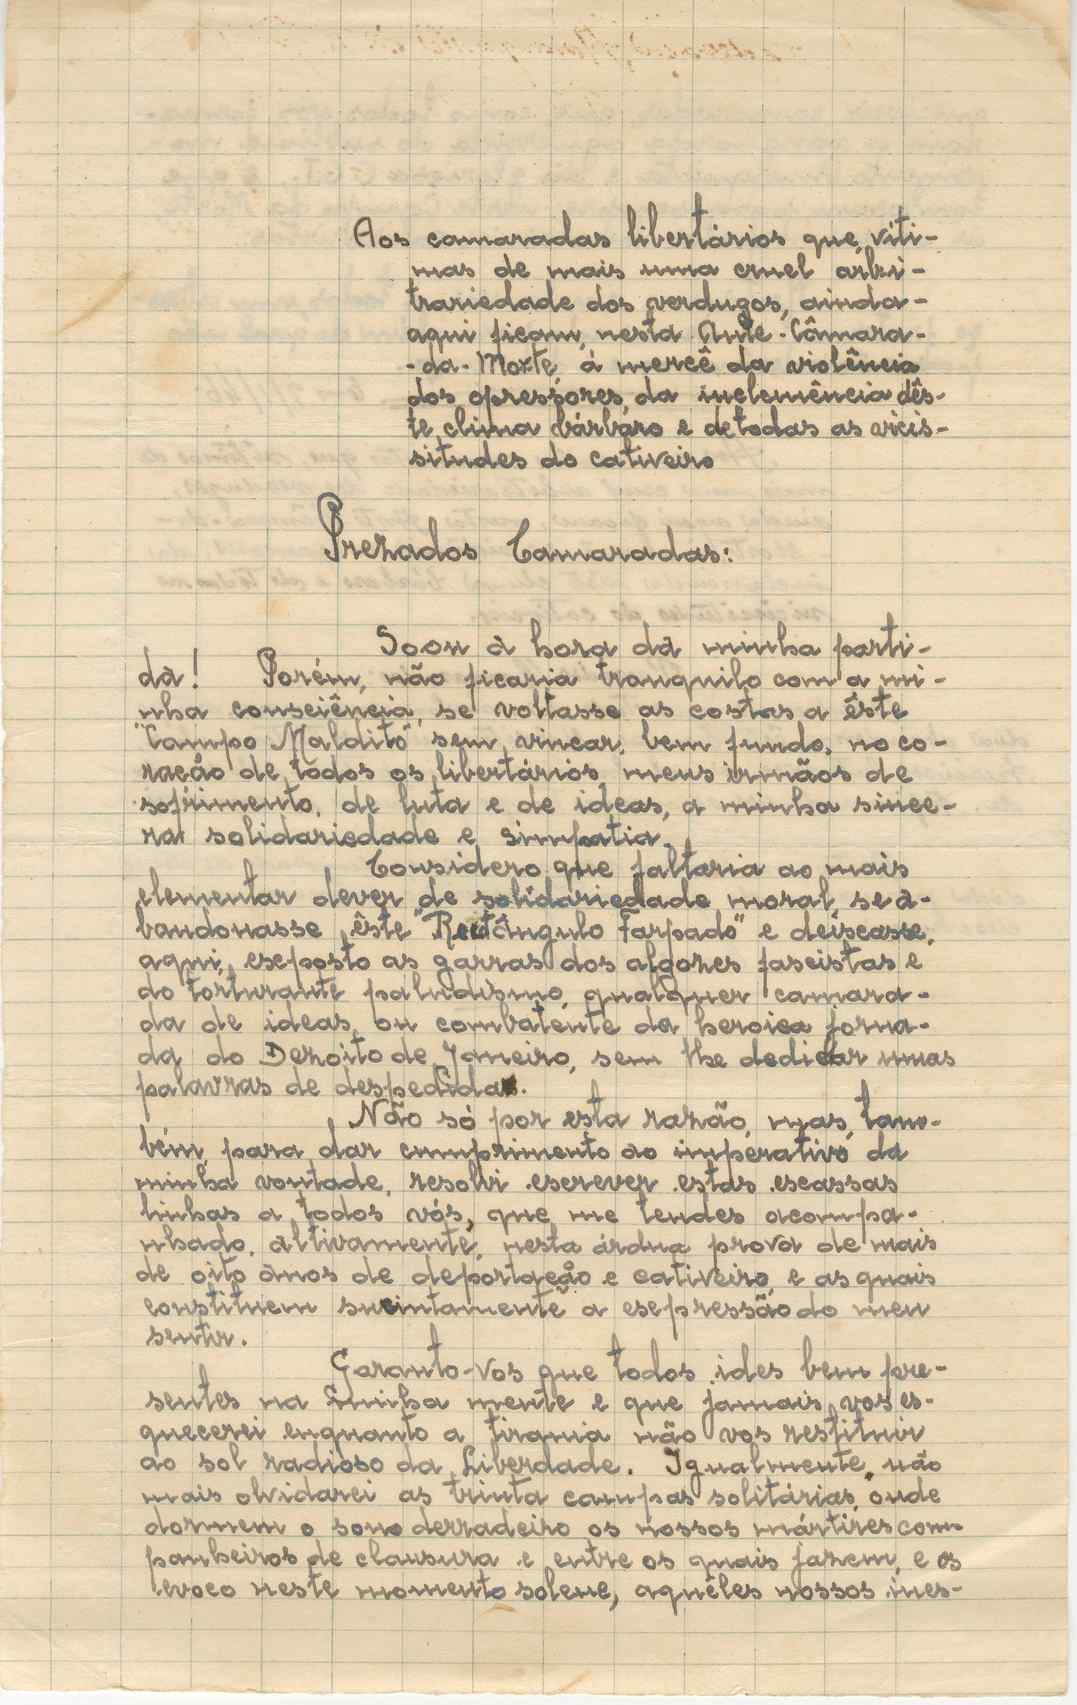 Aos camaradas libertários que, víti-
mas de mais uma cruel arbi-
trariedade dos verdugos, ainda
aqui ficam, nesta Ante-Câmara-
-da-Morte, à mercê da violência
dos opressores, da inclemência dês-
te clima bárbaro e de todas as vicis-
situdes do cativeiro
Prezados Camaradas:
Soou a hora da minha parti-
da! Porém, não ficaria tranquilo com a mi-
nha consciência, se voltasse as costas a êste
"Campo Maldito" sem vincar, bem fundo, no co-
ração de todos os libertários, meus irmãos de
sofrimento, de luta e de ideas, a minha since-
ra solidariedade e simpatia.
Considero que faltaria ao mais
elementar dever de solidariedade moral, se a-
bandonasse êste "Rectângulo Farpado" e deixasse,
aqui, exposto as garras dos algozes fascistas e
do torturante paludismo, qualquer camara-
da de ideas, ou combatente da heroica jorna-
da do Dezoito de Janeiro, sem lhe dedicar umas
palavras de despedida.
Não só por esta razão, mas, tam-
bém, para dar cumprimento ao imperativo da
minha vontade, resolvi escrever estas escassas
linhas a todos vós, que me tendes acompa-
nhado, altivamente, nesta árdua prova de mais
de oito anos de deportação e cativeiro, e as quais
constituem sucintamente a expressão do meu
sentir.
Garanto-vos que todos ides bem pre-
sentes na minha mente e que jamais vos es-
quecerei enquanto a tirania não vos restituir
ao sol radioso da Liberdade. Igualmente, não
mais olvidarei as trinta campas solitárias, onde
dormem o sono derradeiro os nossos mártires com-
panheiros de clausura e entre os quais jazem, e os
evoco neste momento solene, aquêles nossos ines-